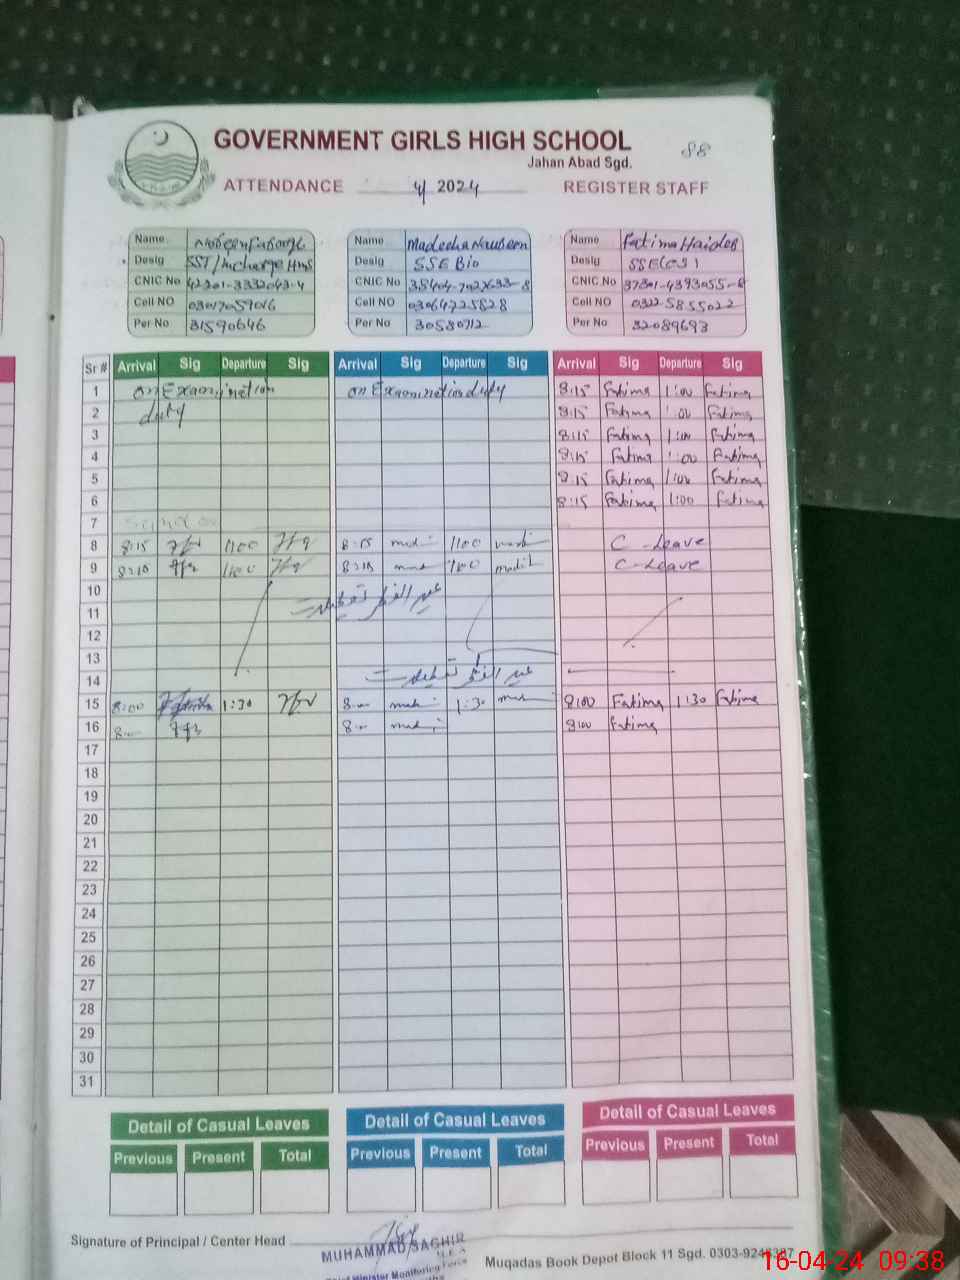 GOVERNMENT GIRLS HIGH SCHOOL
Jahan Abad Sgd.
88
ATTENDANCE 4/ 2024 REGISTER STAFF
Name Name Madeeha Naureen Name Fatima Haider
Desig SST/Incharge Hms Desig SSE Bio Desig SSE(CS)
CNIC No CNIC No CNIC No
Cell NO 03017059016 Cell NO 03064725828 Cell NO 0322-5855022
Per No 31590646 Per No 30580712 Per No 32089693
Sr # Arrival Sig Departure Sig Arrival Sig Departure Sig Arrival Sig Departure Sig
1 on Examination on Examination duty 8:15 Fatima 1:00 Fatima
2 duty 8:15 Fatima 1:00 Fatima
3 8:15 Fatima 1:00 Fatima
4 8:15 Fatima 1:00 Fatima
5 8:15 Fatima 1:00 Fatima
6 8:15 Fatima 1:00 Fatima
7 Sunday
8 8:15 1:00 8:15 1:00 C-Leave
9 8:15 1:00 8:15 1:00 C-Leave
10 عید الفطر تعطیلات
11
12
13
14 عید الفطر تعطیلات
15 8:00 1:30 8:00 1:30 8:00 Fatima 1:30 Fatima
16 8:00 8:00 8:00 Fatima
17
18
19
20
21
22
23
24
25
26
27
28
29
30
31
Detail of Casual Leaves Detail of Casual Leaves Detail of Casual Leaves
Previous Present Total Previous Present Total Previous Present Total
Signature of Principal / Center Head
MUHAMMAD SAGHIR
M.E.A
Chief Minister Monitoring Force
Muqadas Book Depot Block 11 Sgd.
16-04-24 09:38